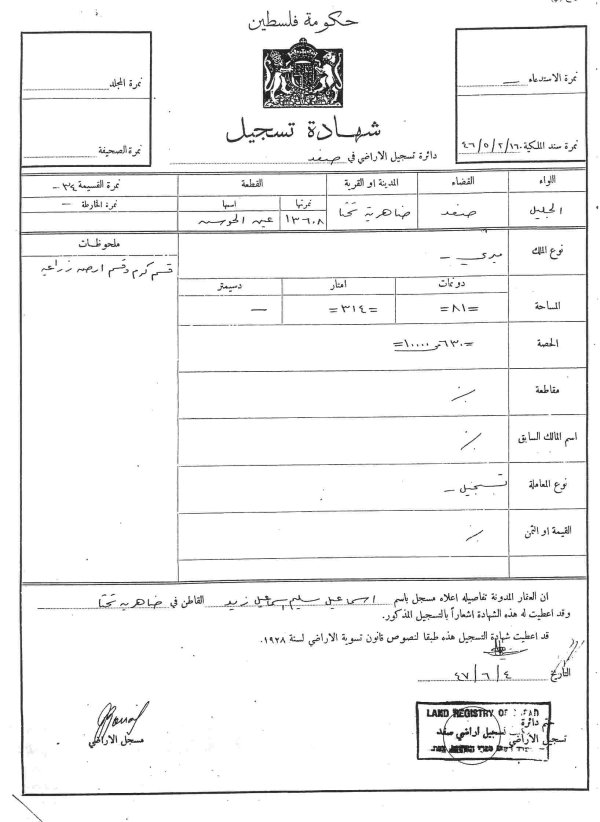 حكومة فلسطين
شهادة تسجيل
دائرة تسجيل الاراضي في صفد
نمرة المجلد
نمرة الصحيفة
نمرة الاستدعاء —
نمرة سند الملكية ٤٦/٥/٢/١٦
اللواء القضاء المدينة او القرية القطعة نمرة القسيمة ٣٤
نمرتها اسمها نمرة الخارطة —
الجليل صفد ضاهرية تحتا ١٣٦٠٨ عين
ملحوظات
قسم كرم وقسم ارض زراعية
نوع الملك ميري —
دونمات امتار دسيمتر
المساحة =٨١= =٣١٤= —
الحصة =٦٣٠ من ١٠٠٠٠=
مقاطعة
اسم المالك السابق
نوع المعاملة تسجيل —
القيمة او الثمن
ان العقار المدونة تفاصيله اعلاه مسجل باسم اسماعيل سليم اسماعيل زيد القاطن في ضاهرية تحتا
وقد اعطيت له هذه الشهادة اشعاراً بالتسجيل المذكور.
قد اعطيت شهادة التسجيل هذه طبقا لنصوص قانون تسوية الاراضي لسنة ١٩٢٨.
التاريخ ٤٧/٦/٤
مسجل الاراضي
ختم دائرة
تسجيل الاراضي
LAND REGISTRY OF
تسجيل اراضي صفد